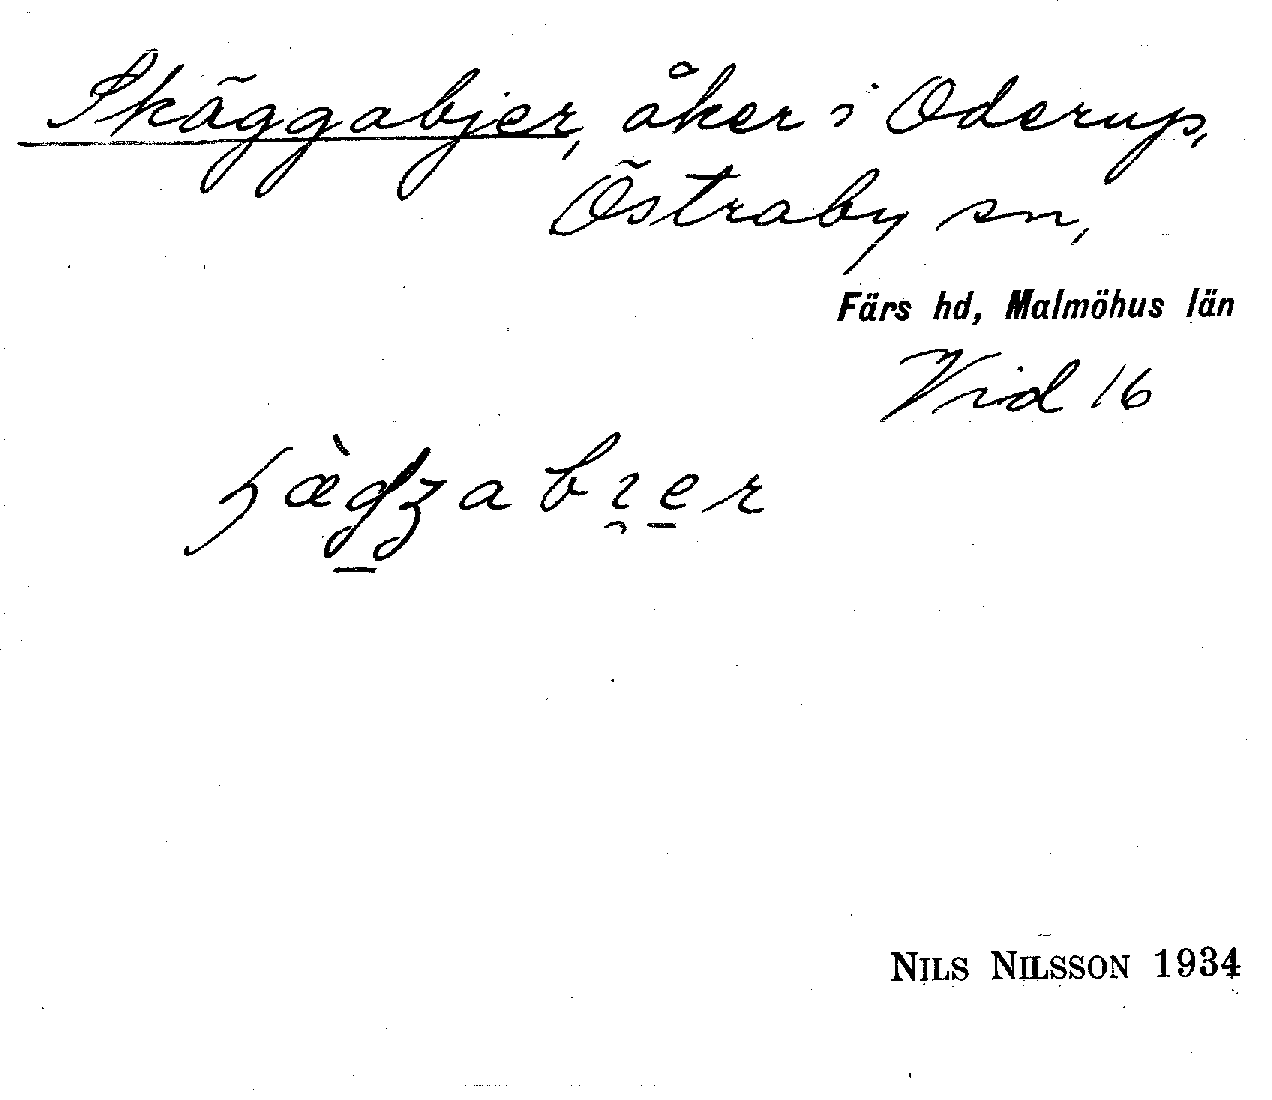 Skäggabjer, åker i Oderup,
Östraby sn,
Färs hd, Malmöhus län
Vid 16
NILS NILSSON 1934